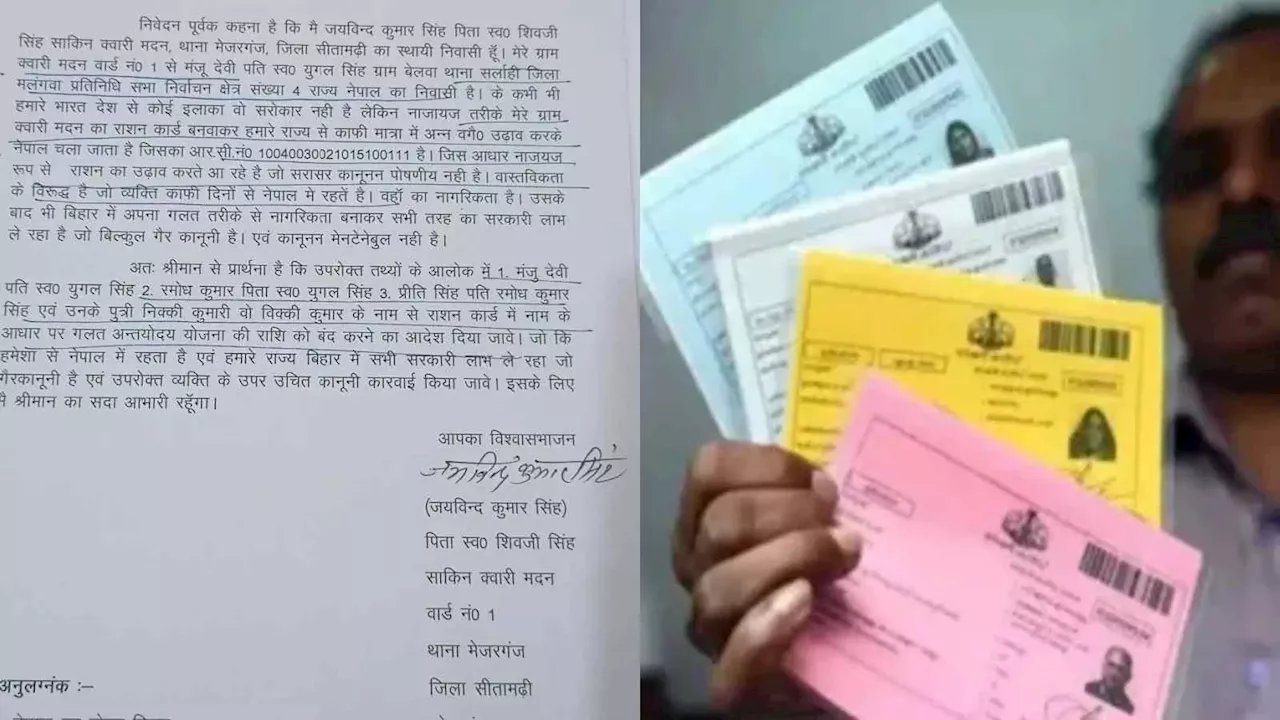 निवेदन पूर्वक कहना है कि मै जयविन्द कुमार सिंह पिता स्व0 शिवजी
सिंह साकिन क्वारी मदन, थाना मेजरगंज, जिला सीतामढ़ी का स्थायी निवासी हूँ। मेरे ग्राम
क्वारी मदन वार्ड नं0 1 से मंजू देवी पति स्व0 युगल सिंह ग्राम बेलवा थाना सर्लाही जिला
मलंगवा प्रतिनिधि सभा निर्वाचन क्षेत्र संख्या 4 राज्य नेपाल का निवासी है। के कभी भी
हमारे भारत देश से कोई इलाका वो सरोकार नही है लेकिन नाजायज तरीके मेरे ग्राम
क्वारी मदन का राशन कार्ड बनवाकर हमारे राज्य से काफी मात्रा में अन्न वगै0 उढ़ाव करके
नेपाल चला जाता है जिसका आर.सी.नं0 10040030021015100111 है। जिस आधार नाजयज
रूप से राशन का उढ़ाव करते आ रहे है जो सरासर कानूनन पोषणीय नही है। वास्तविकता
के विरूद्ध है जो व्यक्ति काफी दिनों से नेपाल मे रहतें है। वहाँ का नागरिकता है। उसके
बाद भी बिहार में अपना गलत तरीके से नागरिकता बनाकर सभी तरह का सरकारी लाभ
ले रहा है जो बिल्कुल गैर कानूनी है। एवं कानूनन मेनटेनेबुल नही है।
अतः श्रीमान से प्रार्थना है कि उपरोक्त तथ्यों के आलोक में 1. मंजु देवी
पति स्व0 युगल सिंह 2. रमोध कुमार पिता स्व0 युगल सिंह 3. प्रीति सिंह पति रमोध कुमार
सिंह एवं उनके पुत्री निक्की कुमारी वो विक्की कुमार के नाम से राशन कार्ड में नाम के
आधार पर गलत अन्तयोदय योजना की राशि को बंद करने का आदेश दिया जावे। जो कि
हमेशा से नेपाल में रहता है एवं हमारे राज्य बिहार में सभी सरकारी लाभ ले रहा जो
गैरकानूनी है एवं उपरोक्त व्यक्ति के उपर उचित कानूनी कारवाई किया जावे। इसके लिए
मै श्रीमान का सदा आभारी रहूँगा।
आपका विश्वासभाजन
जयविन्द कुमार सिंह
(जयविन्द कुमार सिंह)
पिता स्व0 शिवजी सिंह
साकिन क्वारी मदन
वार्ड नं0 1
थाना मेजरगंज
जिला सीतामढ़ी
अनुलग्नंक :–